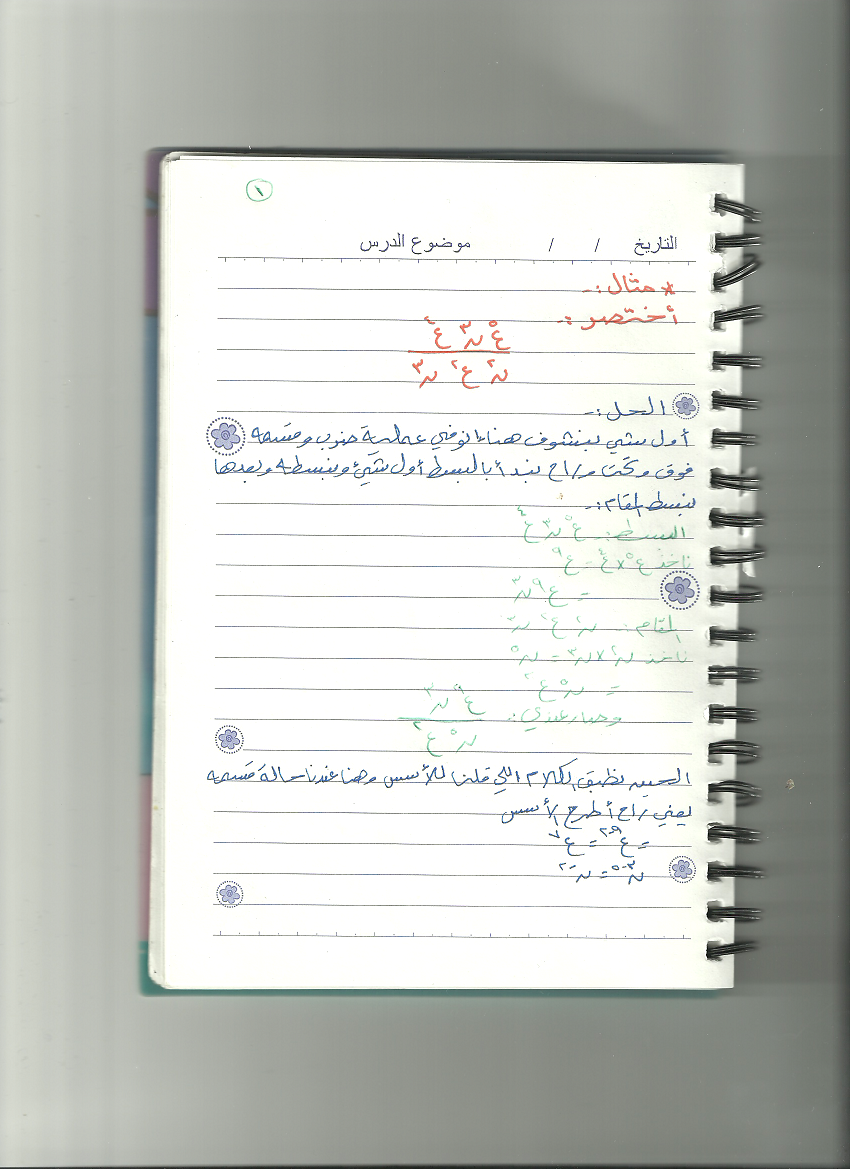 ١
التاريخ / / موضوع الدرس
* مثال :-
أختصر :-
ع٥ ن٣ ع٤
ن٢ ع٢ ن٣
الحل :-
أول شي بنشوف هنا انو في عملية ضرب وقسمه
فوق وتحت وراح نبدأ بالبسط أول شيئ وبنبسطه وبعدها
بنبسط المقام :-
البسط : ع٥ ن٣ ع٤
ناخذ ع٥ × ع٤ = ع٩
= ع٩ ن٣
المقام : ن٢ ع٢ ن٣
ناخذ ن٢ × ن٣ = ن٥
= ن٥ ع٢
وصار عندي :
ع٩ ن٣
ن٥ ع٢
الحين نطبق الكلام اللي قلنا للأسس وهنا عندنا حالة قسمه
يعني راح أطرح الأسس
= ع٩-٢ = ع٧
ن٣-٥ = ن-٢